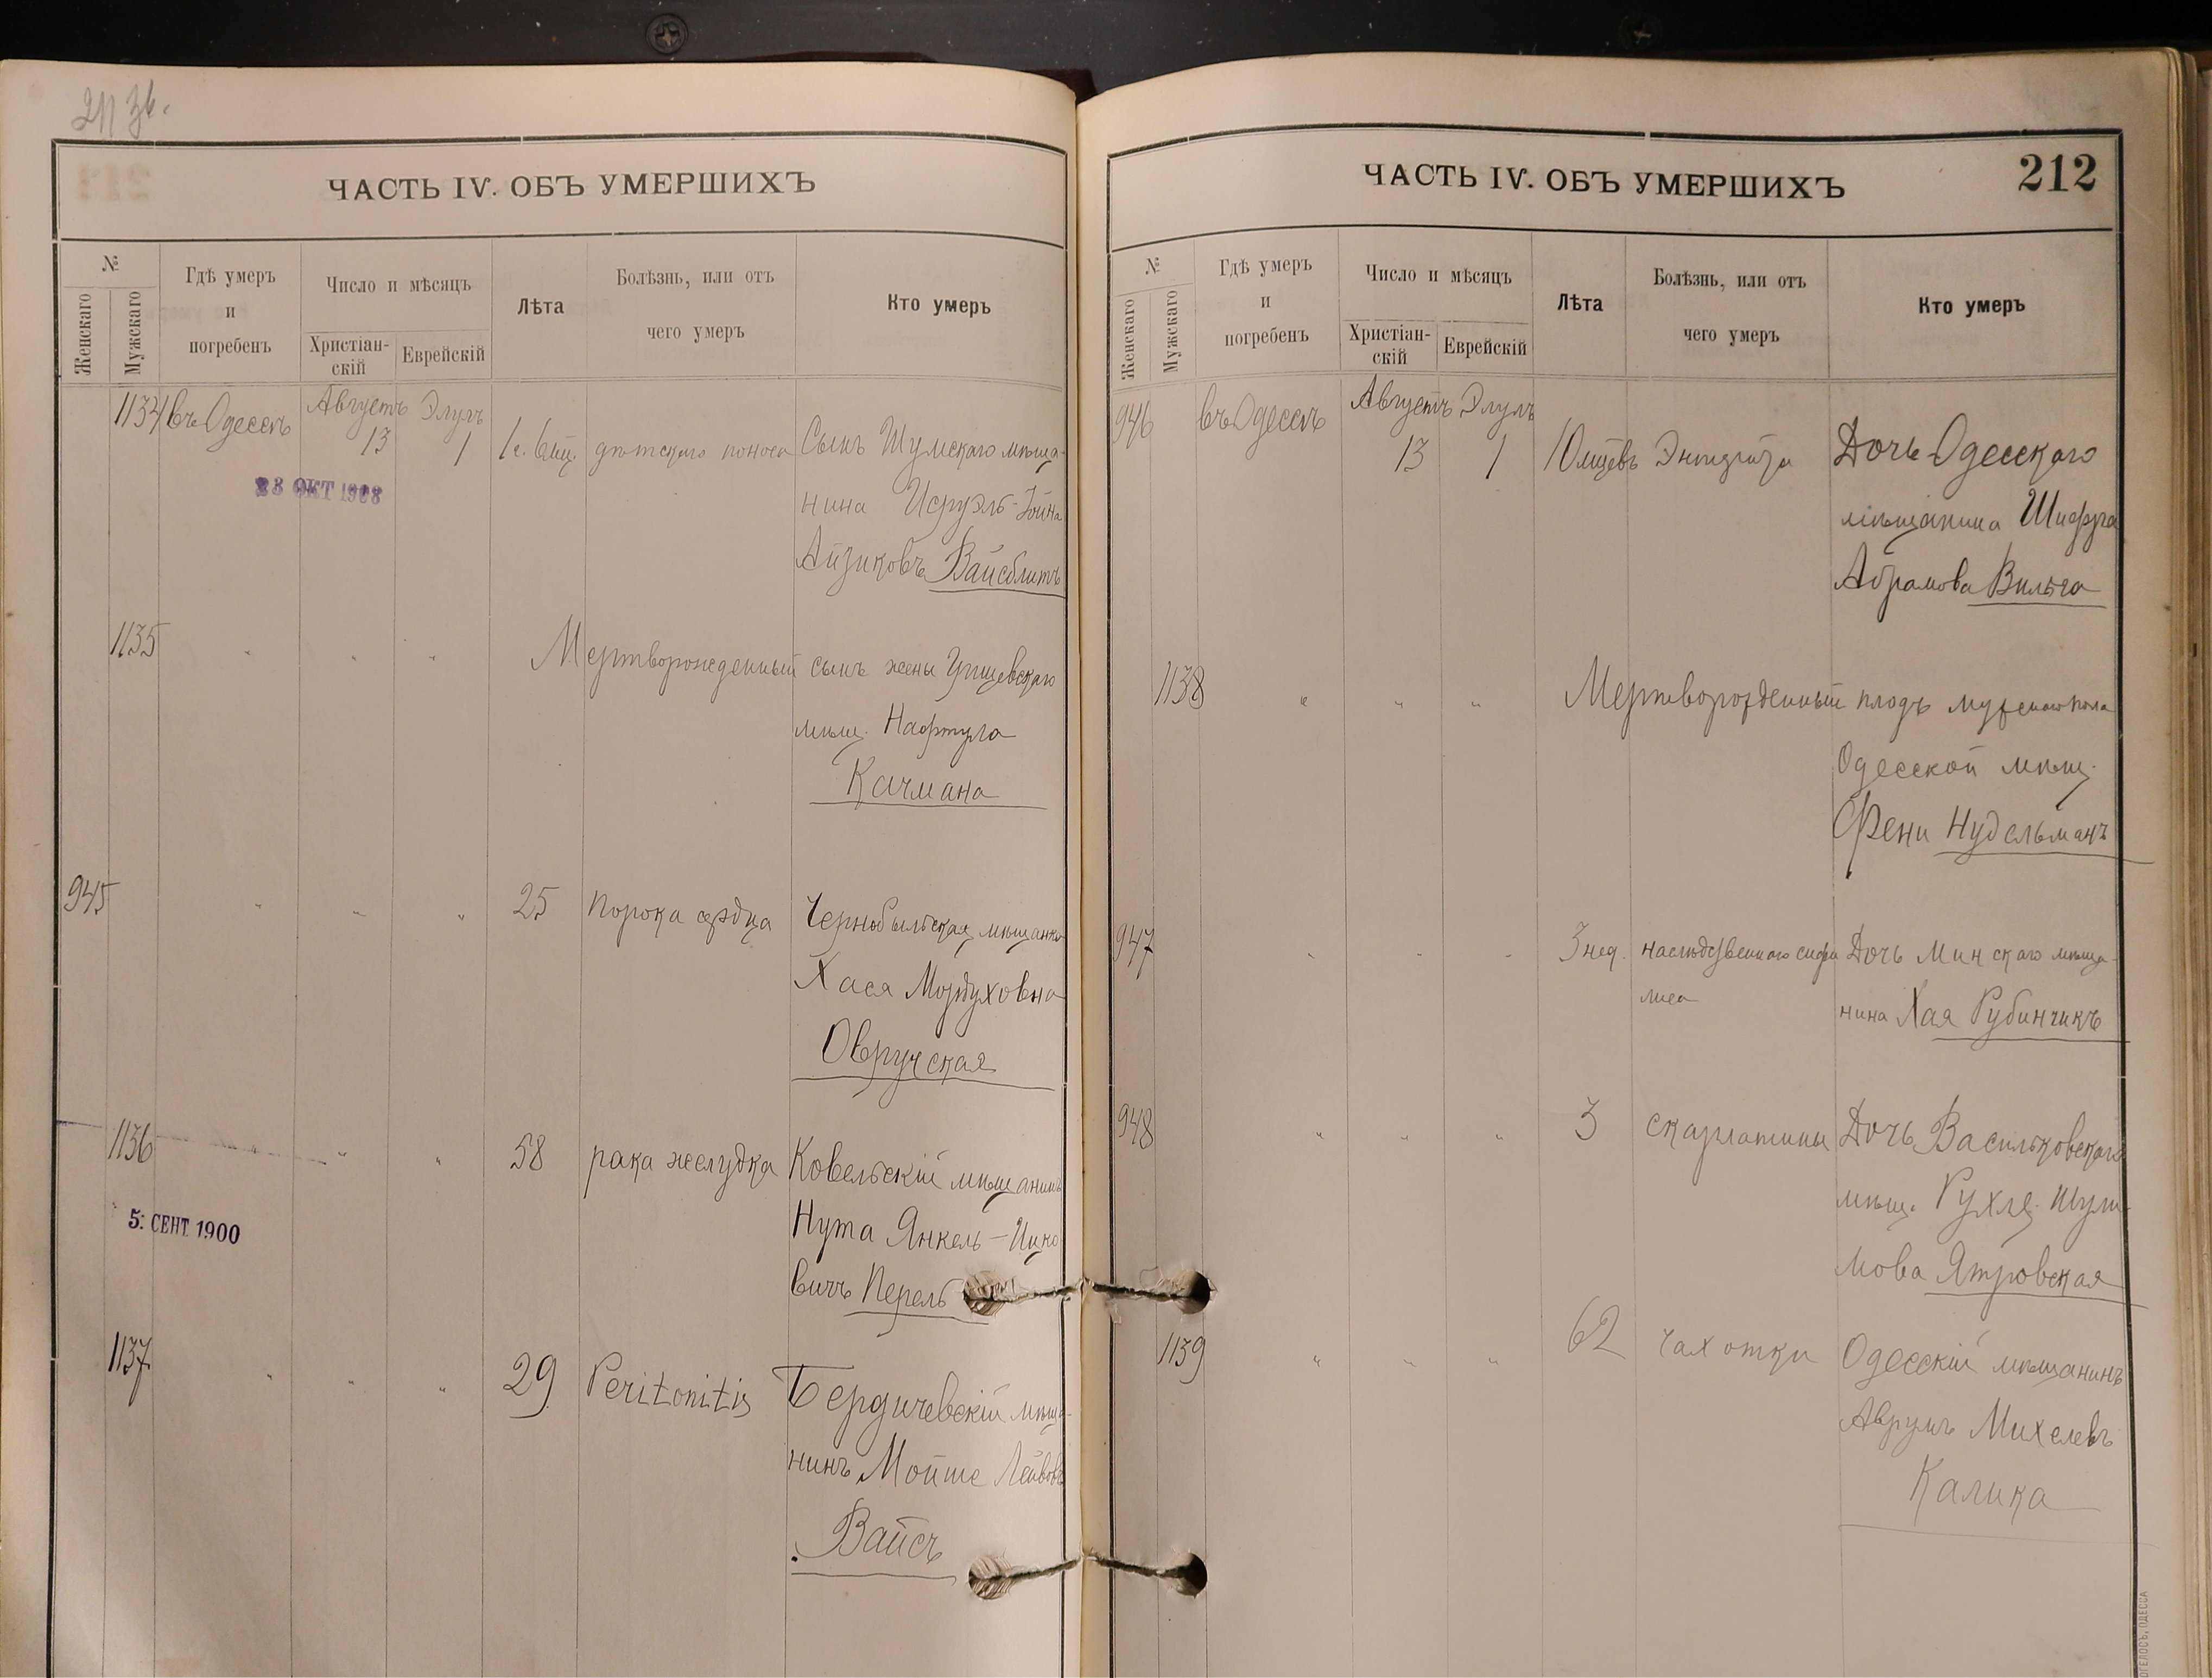 211 зв.
ЧАСТЬ IV. ОБЪ УМЕРШИХЪ
№
Женскаго
Мужскаго
Гдѣ умеръ
и
погребенъ
Число и мѣсяцъ
Христіан-
скій
Еврейскій
Лѣта
Болѣзнь, или отъ
чего умеръ
Кто умеръ
1134 въ Одессѣ Августъ Элулъ
13 1 дѣтскаго поноса Сынъ Шумскаго мѣща-
23 ОКТ
нина Исруэль-
Айзиковъ Вайсблитъ
1135 " " " Мертворожденный сынъ жены
мѣщ. Нафтула
Качмана
945 " " " 25 порока сердца Чернобыльская мѣщанка
Хася Мордуховна
Овручская
1136 " " " 58 рака желудка Ковельскій мѣщанинъ
5. СЕНТ. 1900
Нута Янкель-Ицко
вичъ Перель
1137 " " " 29 Peritonitis Бердичевскій мѣща-
нинъ Мойше Лейвовъ
Вайсъ
ЧАСТЬ IV. ОБЪ УМЕРШИХЪ
212
№
Женскаго
Мужскаго
Гдѣ умеръ
и
погребенъ
Число и мѣсяцъ
Христіан-
скій
Еврейскій
Лѣта
Болѣзнь, или отъ
чего умеръ
Кто умеръ
946 въ Одессѣ Августъ Элулъ
13 1 10 мцевъ Дочь Одесскаго
мѣщанина Шифра
Абрамова
1138 " " " Мертворожденный плодъ мужскаго пола
Одесской мѣщ.
Фени Нудельманъ
947 " " " 3 нед. наслѣдственнаго сифи Дочь Минскаго мѣща-
лиса
нина Хая Рубинчикъ
948 " " " 3 скарлатины Дочь Васильковскаго
мѣщ. Рухля Шули-
мова Ятровская
1139 " " " 62 чахотки Одесскій мѣщанинъ
Аврумъ Михелевъ
Калика